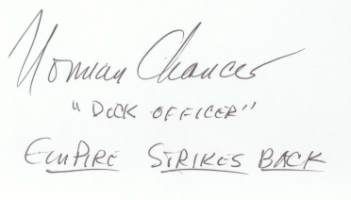 Norman Chancer
"DECK OFFICER"
EMPIRE STRIKES BACK